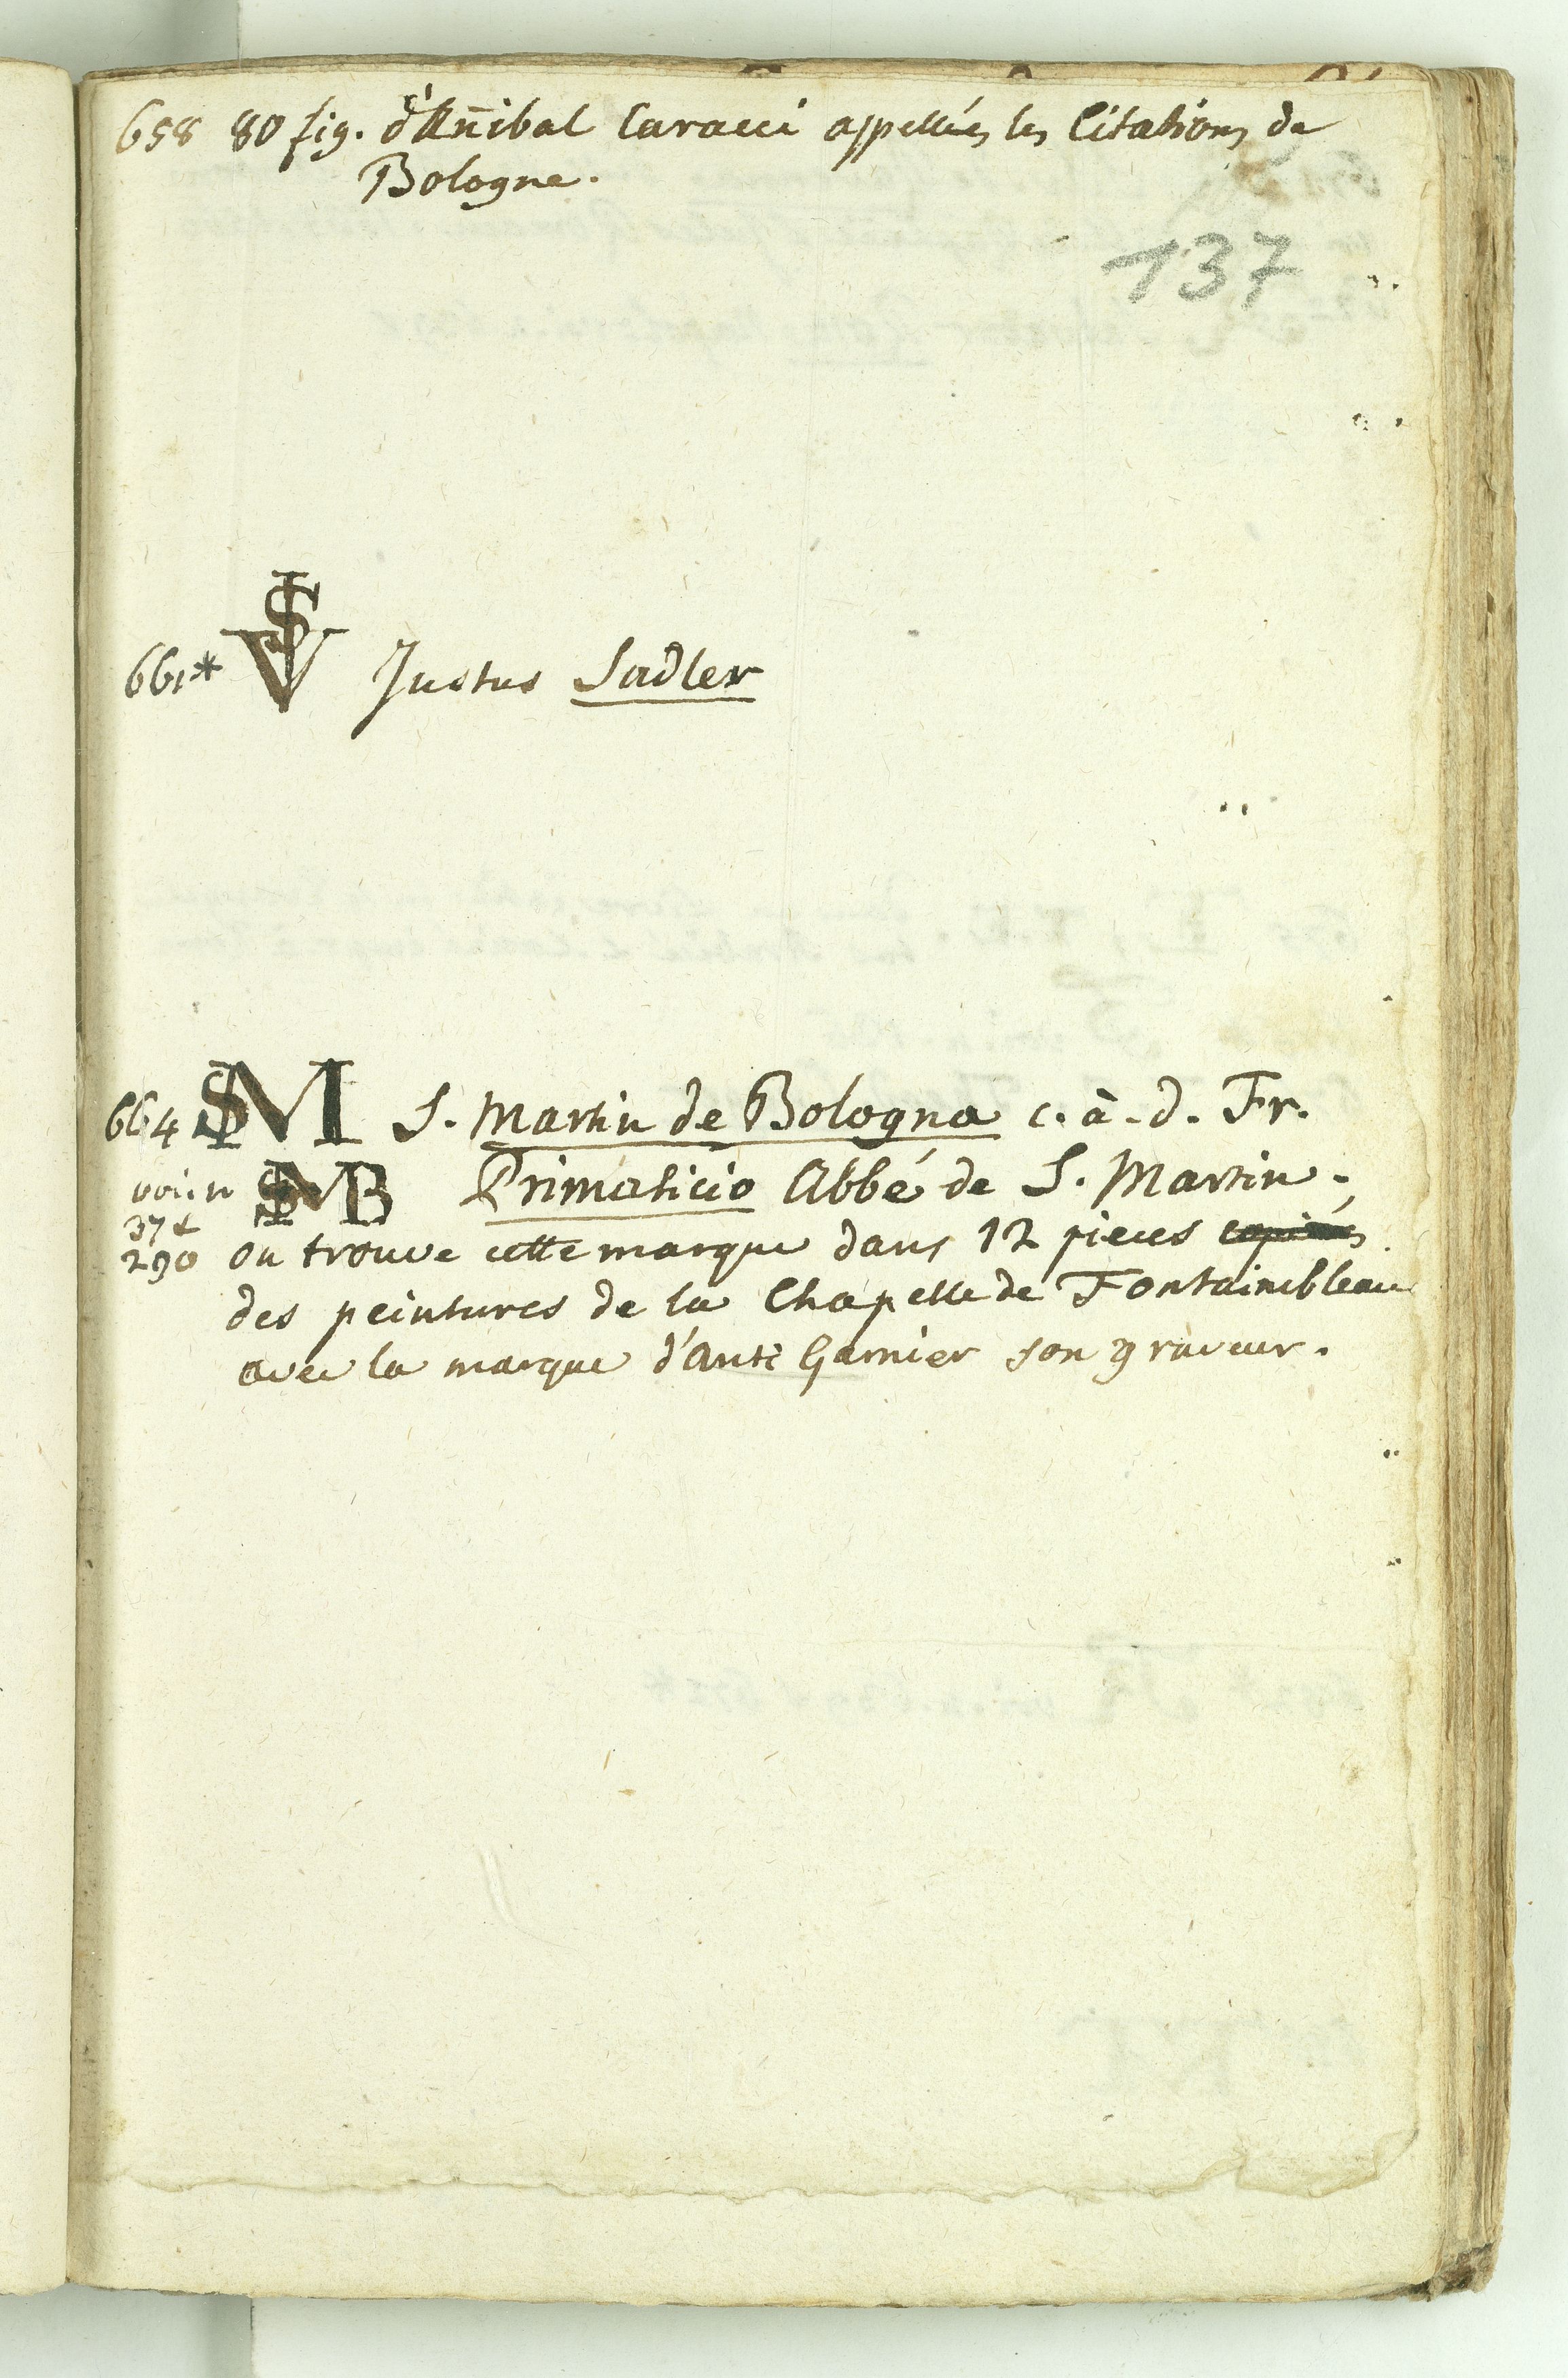 658 80 fig. d'Añibal Caracci appellées les Citations de
Bologne.
137
661* Justus Sadler
664 SM S. Martin de Bologna c. à. d. Fr.
voi: n SMB Primaticio Abbé de S. Martin.
37+
290 on trouve cette marque dans 12 pieces copiées
des peintures de la Chapelle de Fontainebleau
avec la marque d'Ant: Garnier son graveur.